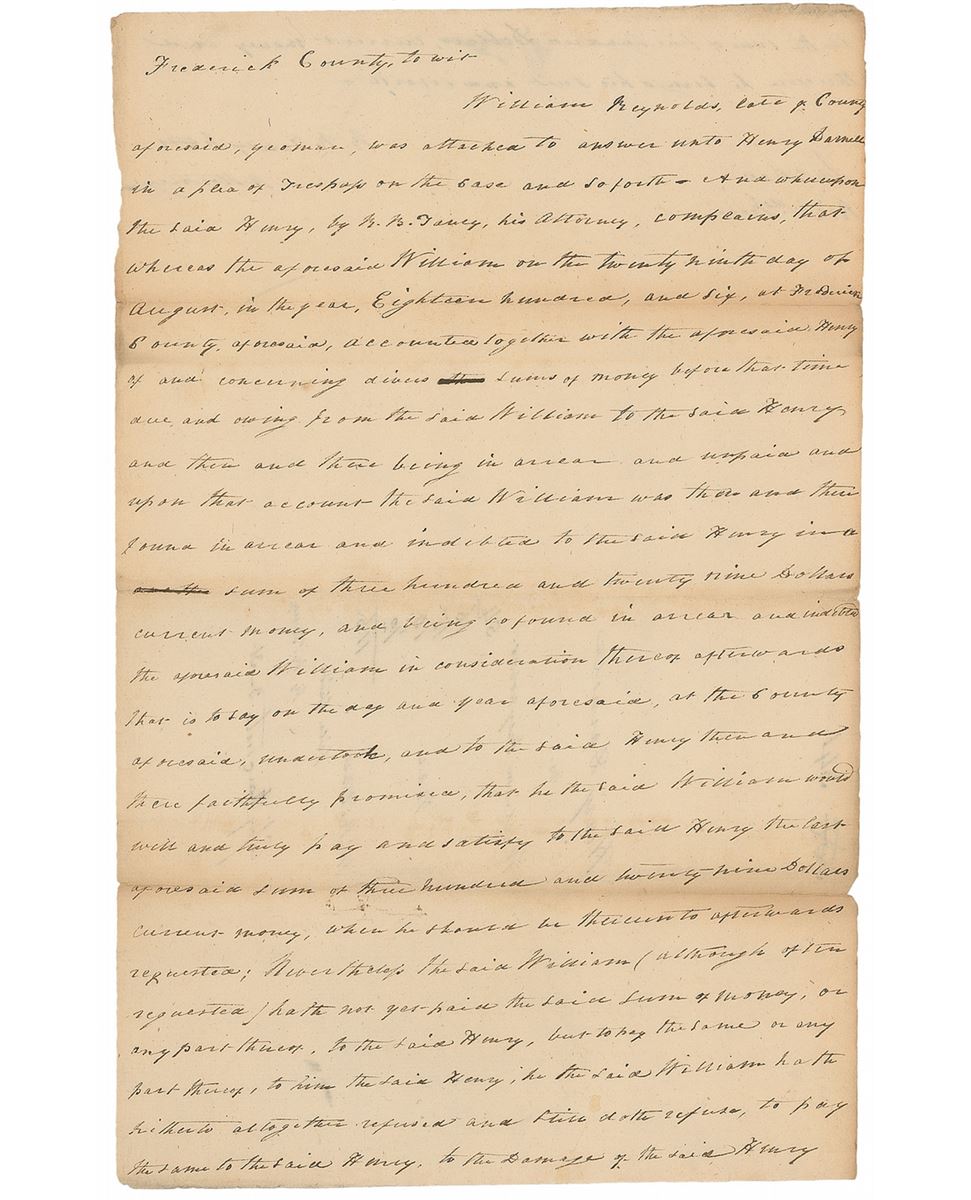 Frederick County, to wit
William Reynolds, late of County
aforesaid, yeoman, was attached to answer unto Henry Darnell
in a plea of Trespass on the Case and so forth - And whereupon
the said Henry, by R. B. Taney, his Attorney, complains, that
whereas the aforesaid William on the twenty ninth day of
August, in the year, Eighteen hundred, and six, at Frederick
County, aforesaid, accounted together with the aforesaid Henry
of and concerning divers sums of money before that time
due and owing from the said William to the said Henry
and then and there being in arrear and unpaid and
upon that account the said William was then and there
found in arrear and indebted to the said Henry in a
sum of three hundred and twenty nine Dollars
current money, and being so found in arrear and indebted
the aforesaid William in consideration thereof afterwards
that is to say on the day and year aforesaid, at the County
aforesaid, undertook, and to the said Henry then and
there faithfully promised, that he the said William would
well and truly pay and satisfy to the said Henry the last
aforesaid sum of three hundred and twenty nine Dollars
current money, when he should be thereunto afterwards
requested; Nevertheless the said William (although often
requested) hath not yet paid the said sum of money, or
any part thereof, to the said Henry, but to pay the same or any
part thereof, to him the said Henry, he the said William hath
hitherto altogether refused and still doth refuse, to pay
the same to the said Henry, to the Damage of the said Henry